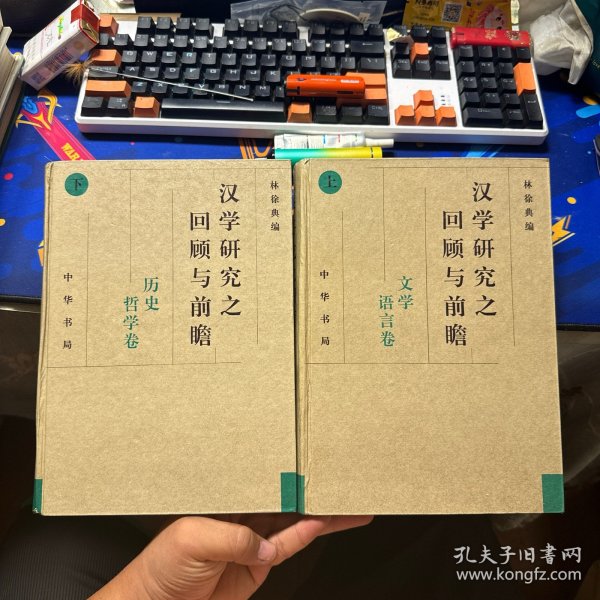 下
林徐典编
汉学研究之
回顾与前瞻
历史
哲学卷
中华书局
上
林徐典编
汉学研究之
回顾与前瞻
文学
语言卷
中华书局
WAR
孔夫子旧书网
www.kongfz.com